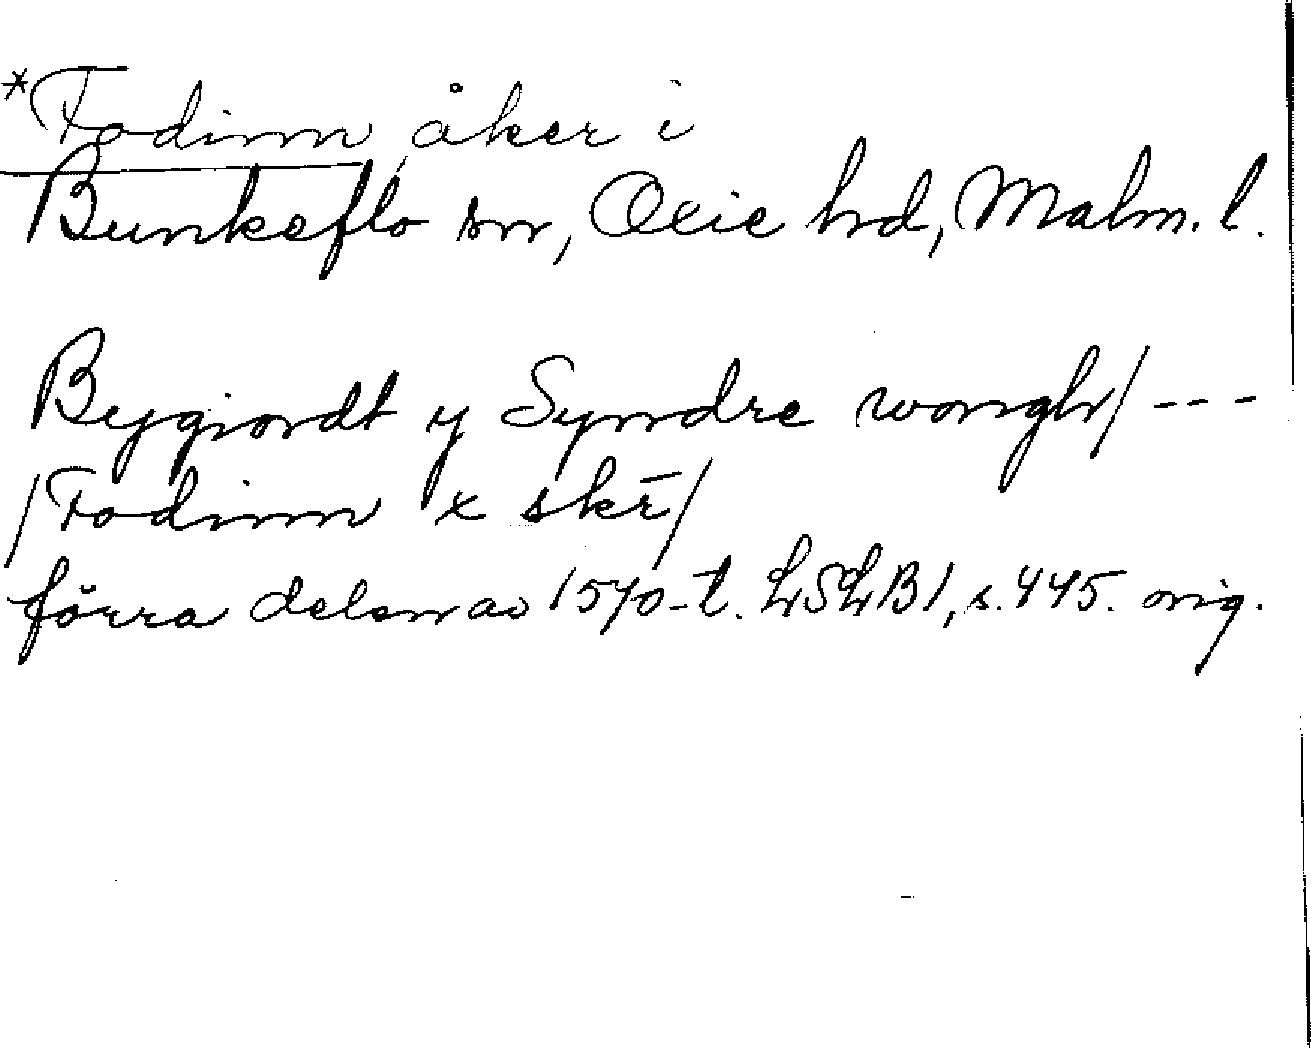 *Fodinn, åker i
Bunkeflo sn, Oxie hd, Malm. l.
Bygiordt y Syndre wongh/ ---
/Fodinn x skr̄/
förra delen av 1570-t. LSLB1, s. 445. orig.